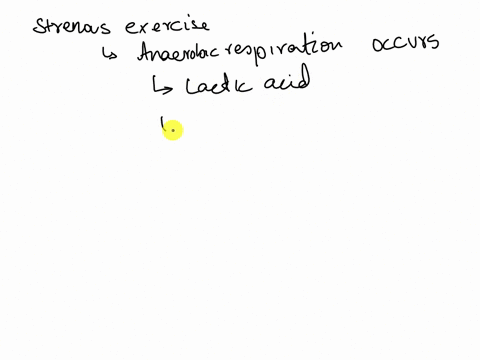 Strenous exercise
↳ Anaerobic respiration occurs
↳ Lactic acid